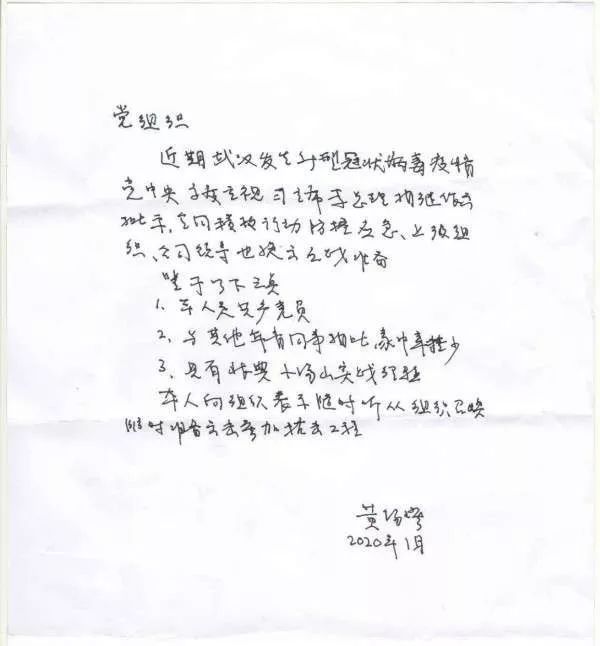 党组织
近期武汉发生新型冠状病毒疫情
党中央高度重视 习主席李总理相继作出
批示,全国积极行动防控应急、上级组
织、公司领导也作出
鉴于以下三点
1. 本人是共产党员
2. 与其他年青同事相比,家中牵挂少
3. 具有非典小汤山实战经验
本人向组织表示随时听从组织召唤
随时准备出击参加抗击工程
黄
2020年1月